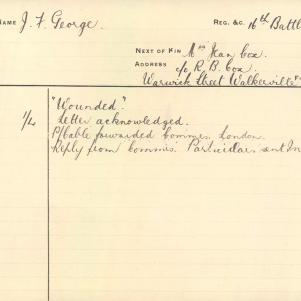 NAME J. F. George. REG. &C. 16th Battl
NEXT OF KIN Mrs Jean Cox.
ADDRESS c/o R. B. Cox.
Warwick Street Walkerville
1/4 "Wounded."
Letter acknowledged.
P/Cable forwarded Commrs. London.
Reply from Commrs. Particulars sent In